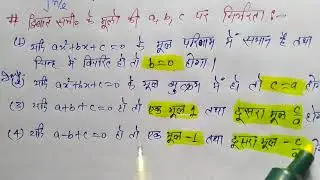 #:- द्विघात समी० के मूलों की a, b, c पर निर्भरता:-
(1) यदि ax²+bx+c=0 के मूल परिमाण में समान है तथा
चिन्ह में विपरीत हो तो b=0 होगा।
(2) यदि ax²+bx+c=0 के मूल व्युत्क्रम में हो तो c=a होगा
(3) यदि a+b+c=0 हो तो एक मूल 1 तथा दूसरा मूल c/a होगा
(4) यदि a-b+c=0 हो तो एक मूल -1 तथा दूसरा मूल -c/a